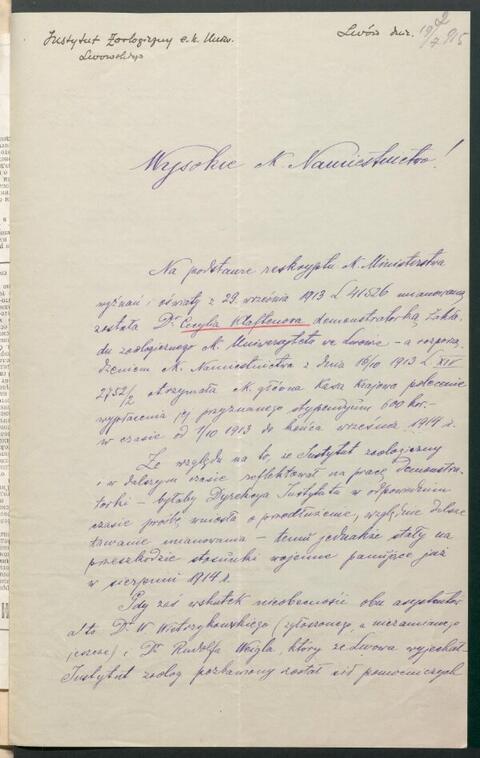 Instytut Zoologiczny c.k. Uniw.
Lwowskiego
Lwów dnia 19/7 915
Wysokie k. Namiestnictwo!
Na podstawie reskryptu k. Ministerstwa
wyznań i oświaty z 29. września 1913 L 41526 mianowaną
została Dr Cecylia Klaftenowa demonstratorką Zakła-
du zoologicznego k. Uniwersytetu we Lwowie – a rozporzą-
dzeniem k. Namiestnictwa z dnia 16/10 1913 L XIV
2752/2 otrzymała k. główna Kasa Krajowa polecenie
wypłacenia jej przyznanego stypendyum 600 kor. –
w czasie od 1/10 1913 do końca września 1914 r.
Ze względu na to, że Instytut zoologiczny
i w dalszym czasie reflektował na pracę Demonstra-
torki – byłaby Dyrekcja Instytutu w odpowiednim
czasie prośbę wniosła o przedłużenie, względnie dalsze
mianowanie – temu jednakże stały na
przeszkodzie stosunki wojenne panujące już
w sierpniu 1914 r.
Gdy zaś wskutek nieobecności obu asystentów
a to Dr W (zgłoszonego, a niezamianow.
jeszcze) i Dr Rudolfa Weigla, który ze Lwowa wyjechał
Instytut zoolog pozbawiony został sił pomocniczych